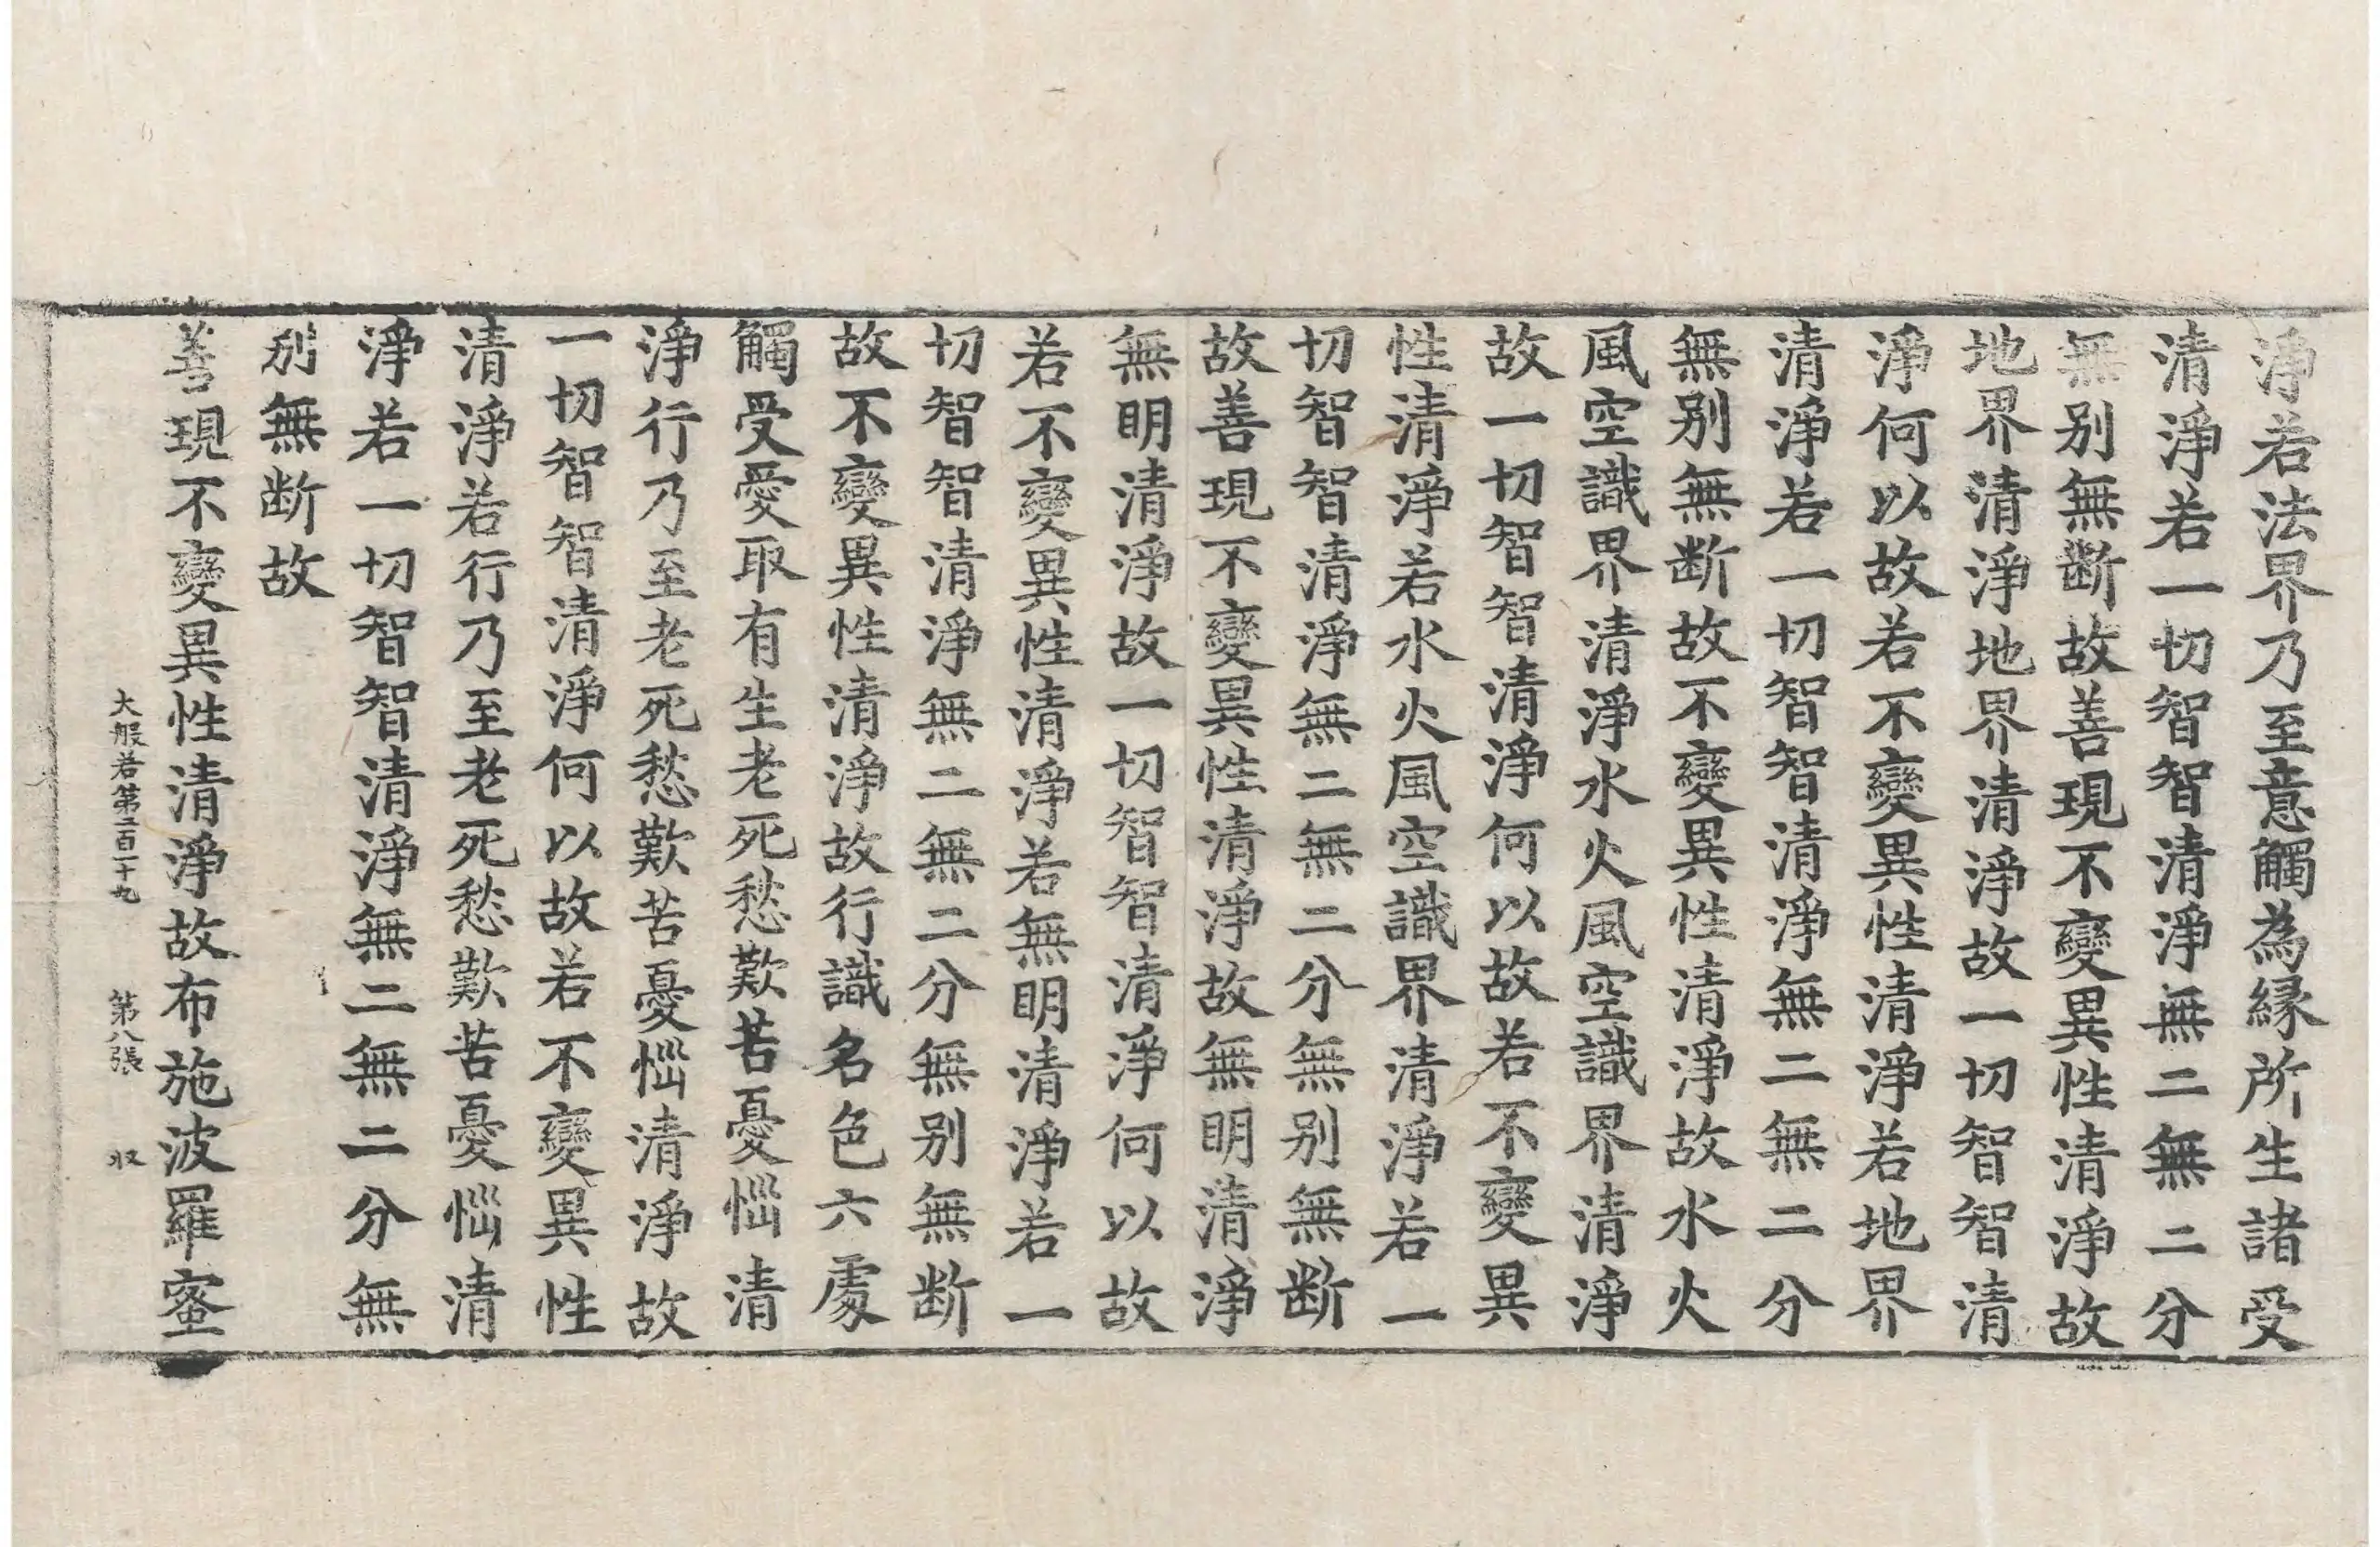 淨若法界乃至意觸為縁所生諸受
清淨若一切智智清淨無二無二分
無别無断故善現不變異性清淨故
地界清淨地界清淨故一切智智清
淨何以故若不變異性清淨若地界
清淨若一切智智清淨無二無二分
無别無断故不變異性清淨故水火
風空識界清淨水火風空識界清淨
故一切智智清淨何以故若不變異
性清淨若水火風空識界清淨若一
切智智清淨無二無二分無别無断
故善現不變異性清淨故無明清淨
無明清淨故一切智智清淨何以故
若不變異性清淨若無明清淨若一
切智智清淨無二無二分無别無断
故不變異性清淨故行識名色六處
觸受愛取有生老死愁歎苦憂惱清
淨行乃至老死愁歎苦憂惱清淨故
一切智智清淨何以故若不變異性
清淨若行乃至老死愁歎苦憂惱清
淨若一切智智清淨無二無二分無
别無断故
善現不變異性清淨故布施波羅蜜
大般若第二百一十九 第八張 収